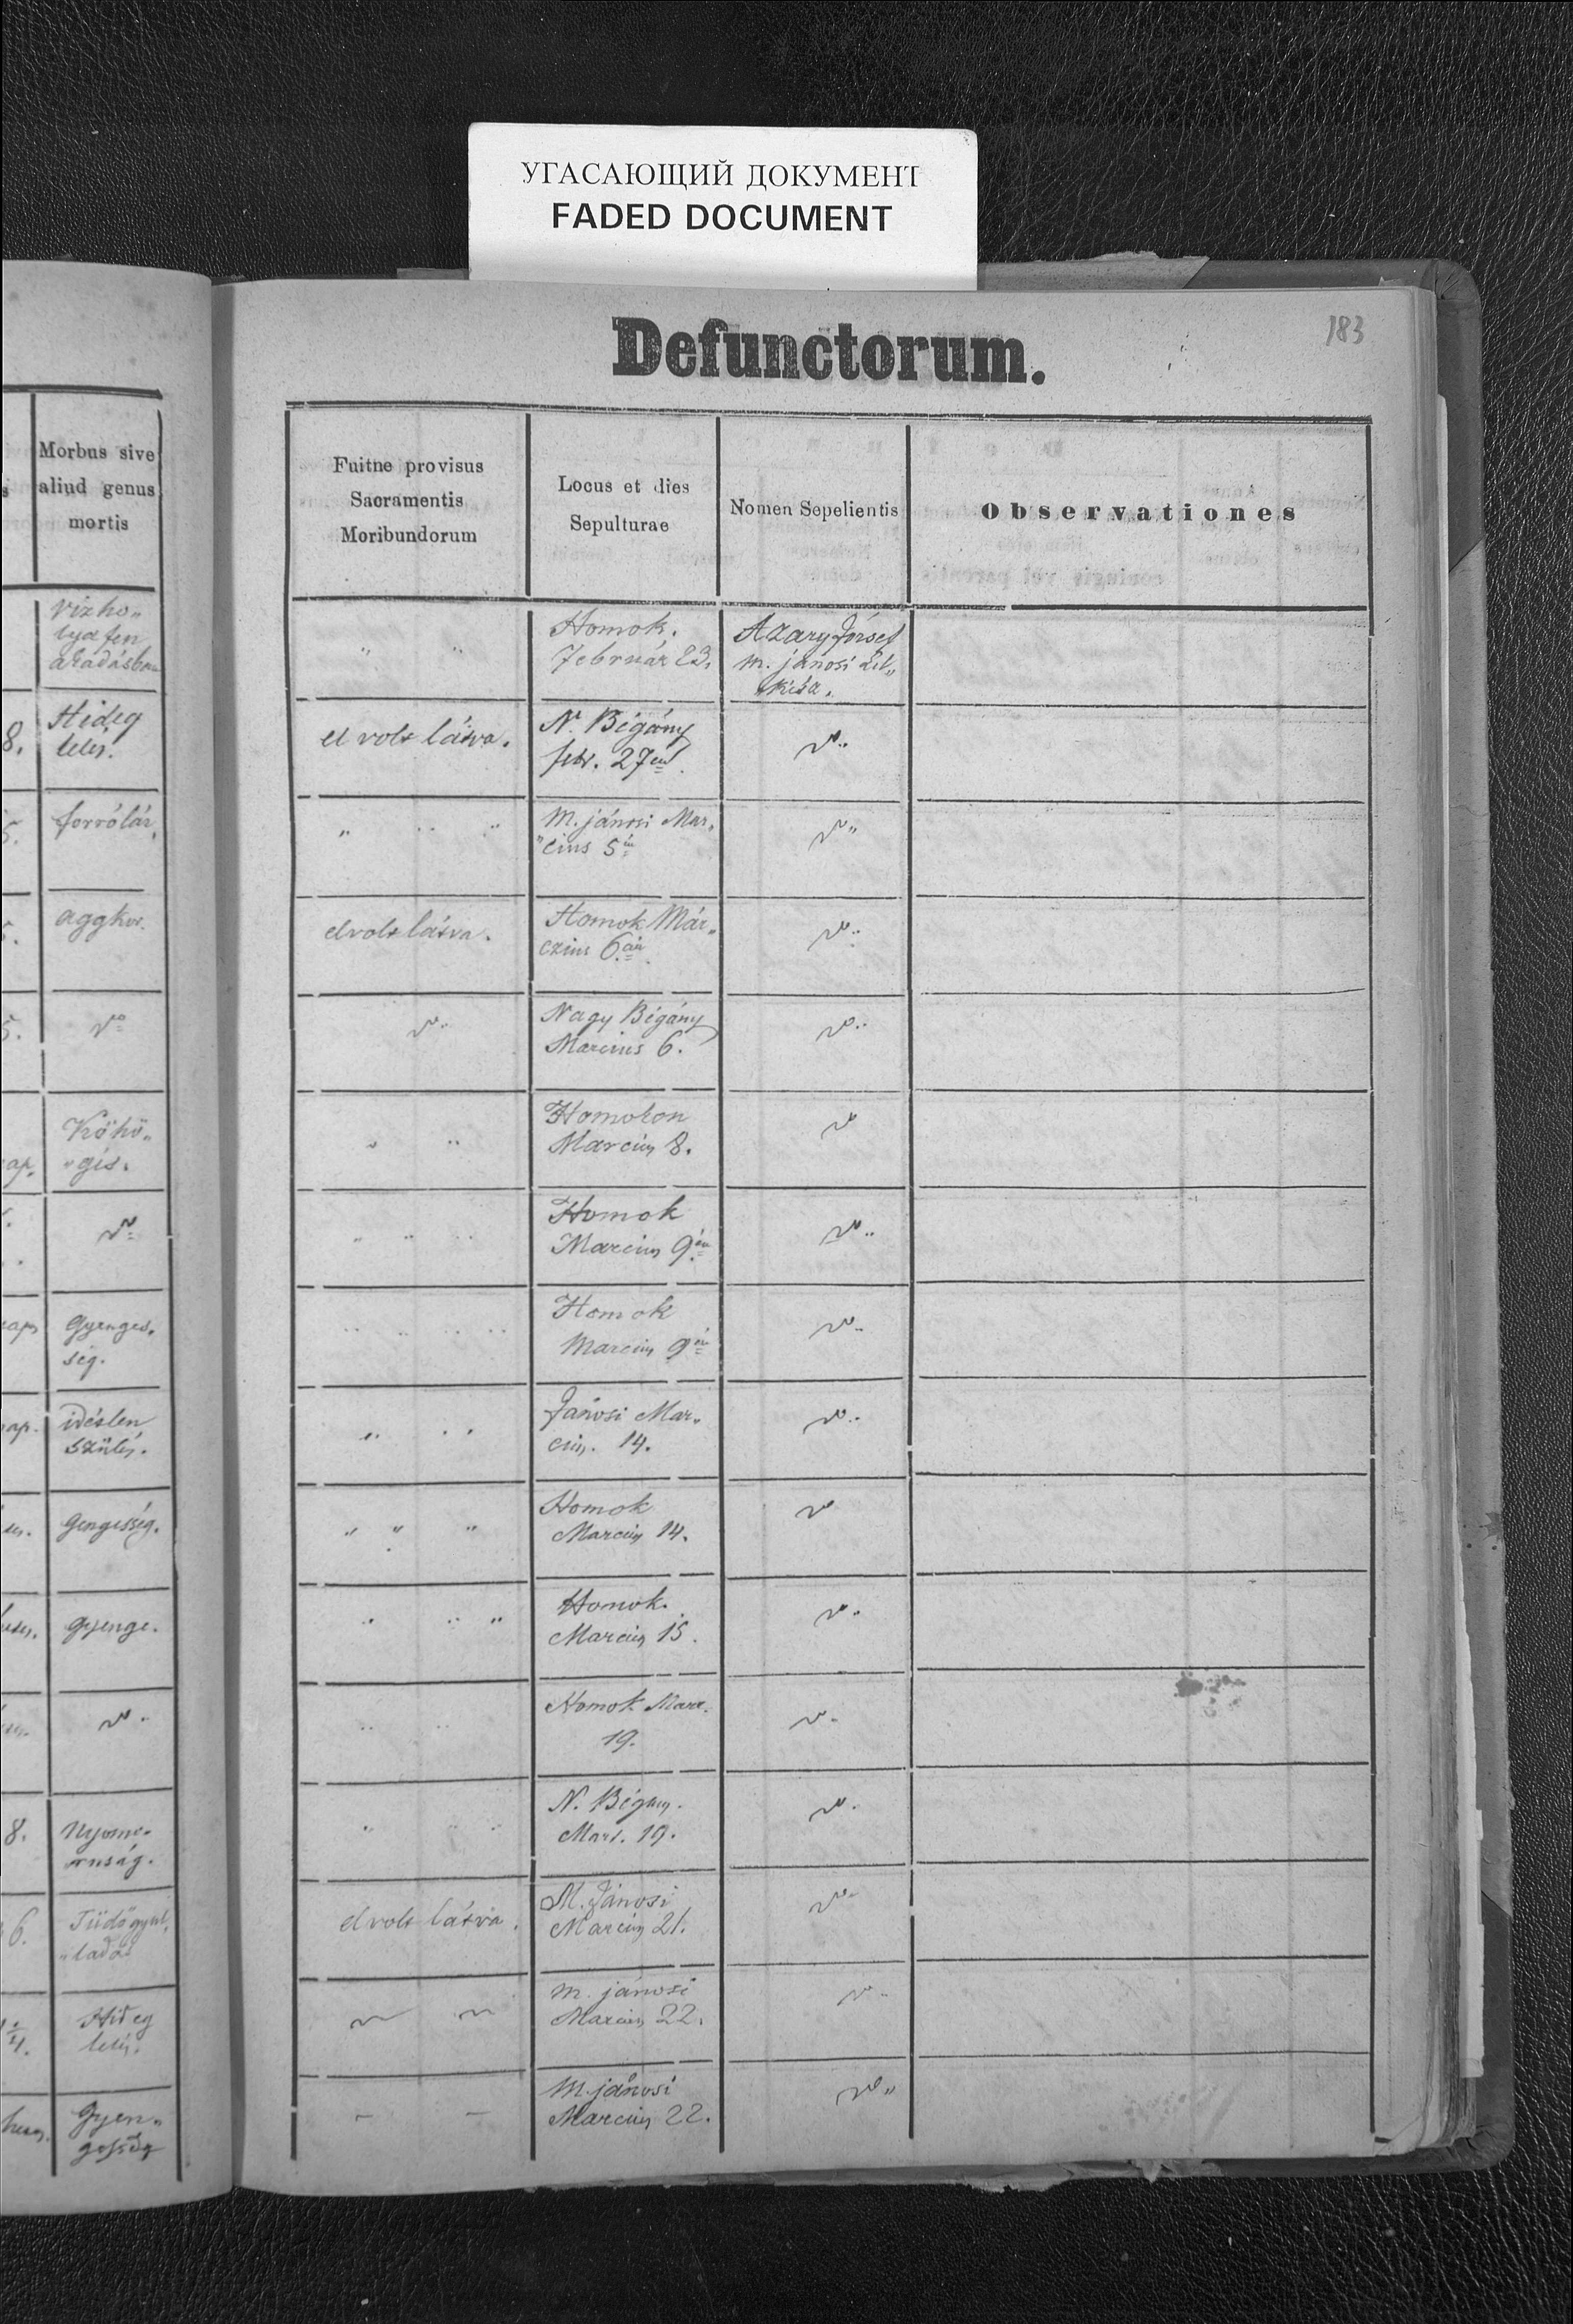 УГАСАЮЩИЙ ДОКУМЕНТ
FADED DOCUMENT
183
Defunctorum.
Morbus sive
aliud genus
mortis
Fuitne provisus
Sacramentis
Moribundorum
Locus et dies
Sepulturae
Nomen Sepelientis
Observationes
vizho„
lyag fen
akadásban
" "
Homok.
Február 23.
Azary József
m. jánosi Lel„
kész.
8.
Hideg
lelés.
el volt látva.
N. Bégány
febr. 27én
d°..
5.
forróláz
" .. ..
M. jánosi Mar„
"cius 5én
d°"
5.
aggkor.
elvolt látva.
Homok Már„
czius 6án
d°..
5.
d°
d°..
Nagy Bégány
Marcius 6.
d°..
ap.
Köhö„
„gés.
" ..
Homokon
Marcius 8.
d°
d°
" .. ..
Homok
Marcius 9én
d°..
Gyenges„
ség.
.. .. .. ..
Homok
Marcius 9én
d°..
ap.
idéslen
szülés.
.. ..
Jánosi Mar„
cius. 14.
d°..
Gengesség.
" " "
Homok
Marcius 14.
d°
gyenge.
" .. "
Homok.
Marcius 15.
d°.
d°.
.. ..
Homok Marc.
19.
d°.
8.
" ..
N. Bégány.
Mart. 19.
d°.
6.
Tüdőgyul„
„ladás
elvolt látva.
M. Jánosi
Marcius 21.
d°
4.
Hideg
lelés.
~ ~
m. jánosi
Marcius 22.
d°
Gyen„
gesség
– –
M. jánosi
Marcius 22.
d°"